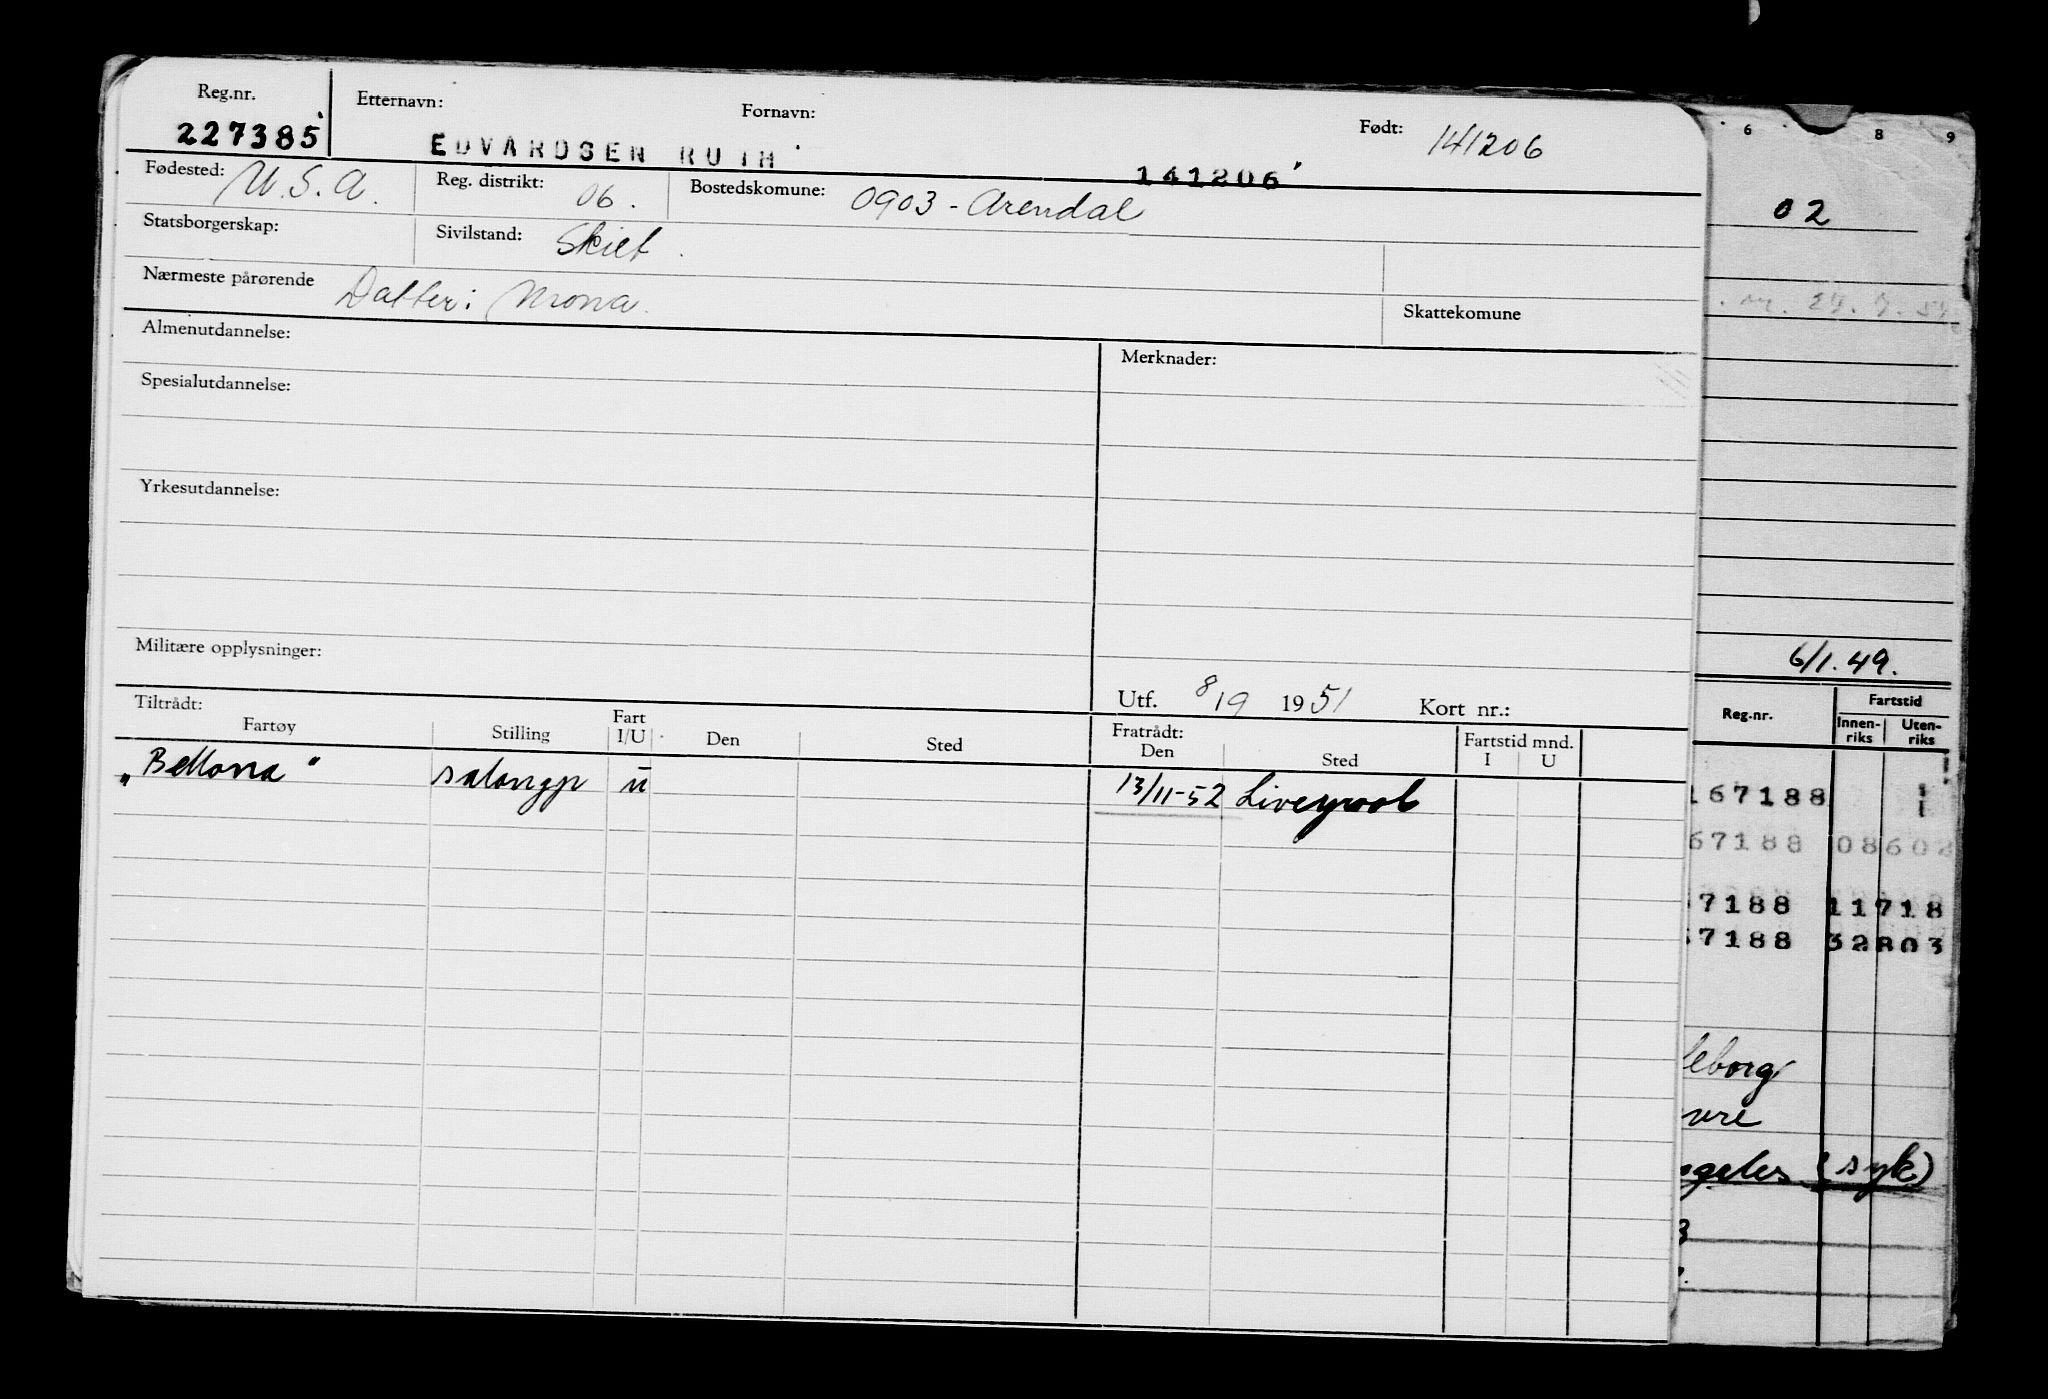 Reg.nr. Etternavn: Fornavn: Født: 141206
227385 EDVARDSEN RUTH 141206
Fødested: U.S.A. Reg. distrikt: 06. Bostedskomune: 0903 - Arendal
Statsborgerskap: Sivilstand: Skilt.
Nærmeste pårørende Datter: Mona. Skattekomune
Almenutdannelse: Merknader:
Spesialutdannelse:
Yrkesutdannelse:
Militære opplysninger:
Utf. 8/9 1951 Kort nr.:
Tiltrådt: Fratrådt:
Fartøy Stilling Fart I/U Den Sted Den Sted Fartstid mnd. I U
"Bellona" salongp u 13/11-52 Liverpool
6 8 9
02
6/1.49.
Reg.nr. Fartstid
Innen-riks Uten-riks
167188
67188 08602
7188 11718
7188 32803
leborg
vre
ngeles (syk)